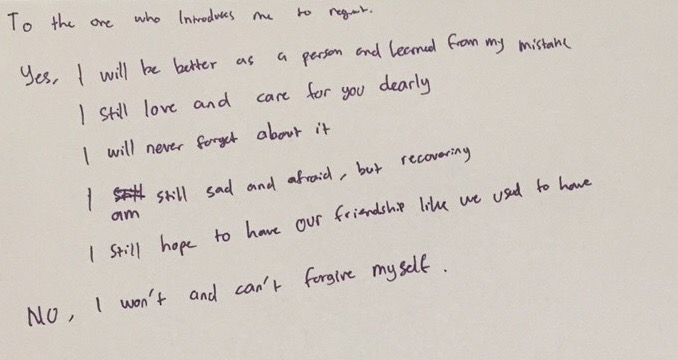 To the one who Introduces me to regret.
Yes, I will be better as a person and learned from my mistake
I still love and care for you dearly
I will never forget about it
I am still sad and afraid, but recovering
I still hope to have our friendship like we used to have
NO, I won't and can't forgive myself.